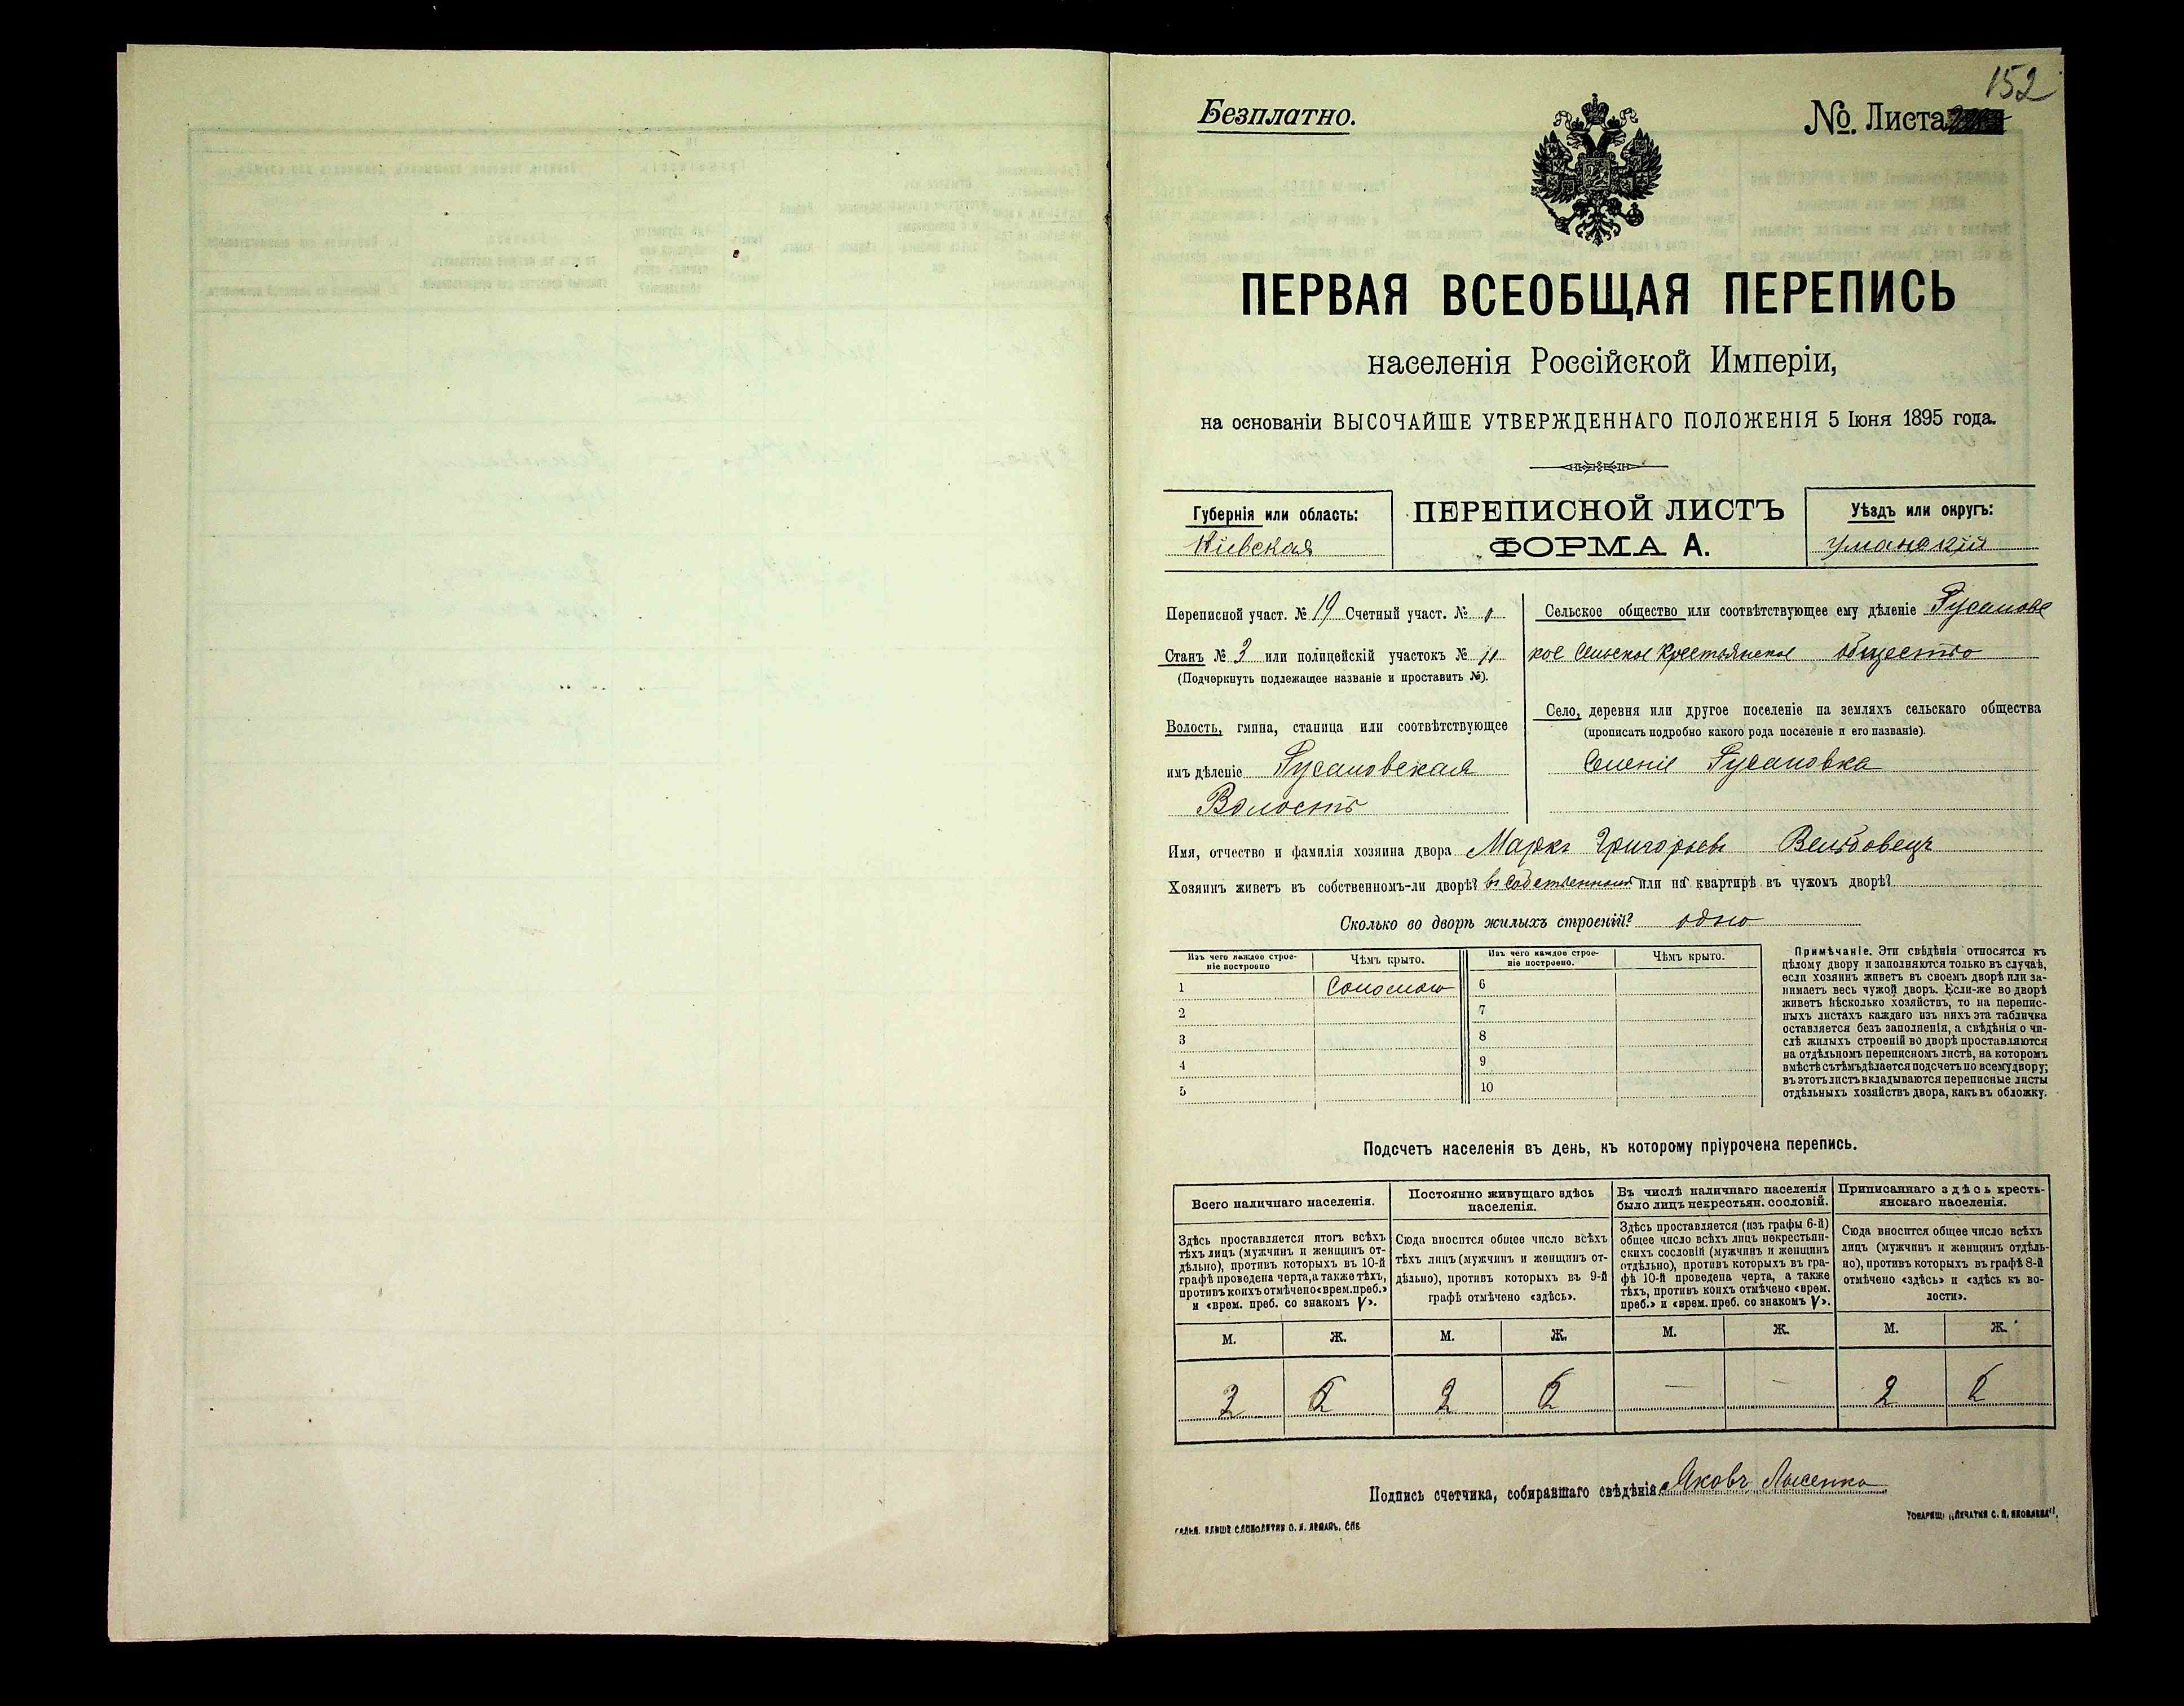 152
Безплатно.
№. Листа
ПЕРВАЯ ВСЕОБЩАЯ ПЕРЕПИСЬ
населенія Россійской Имперіи,
на основаніи ВЫСОЧАЙШЕ УТВЕРЖДЕННАГО ПОЛОЖЕНІЯ 5 Іюня 1895 года.
Губернія или область:
Кіевская
ПЕРЕПИСНОЙ ЛИСТЪ
ФОРМА А.
Уѣздъ или округъ:
Уманскій
Переписной участ. № 19 Счетный участ. №
Станъ № 3 или полицейскій участокъ №
(Подчеркнуть подлежащее названіе и проставить №).
Волость, гмина, станица или соотвѣтствующее
имъ дѣленіе Русаловская
Волость
Сельское общество или соотвѣтствующее ему дѣленіе Русаловс
кое Сельское Крестьянское общество
Село, деревня или другое поселеніе на земляхъ сельскаго общества
(прописать подробно какого рода поселеніе и его названіе).
Селеніе Русаловка
Имя, отчество и фамилія хозяина двора Маркъ Григорьевъ Вельбовецъ
Хозяинъ живетъ въ собственномъ-ли дворѣ? въ собственномъ или на квартирѣ въ чужомъ дворѣ?
Сколько во дворѣ жилыхъ строеній? одно
Изъ чего каждое строе-
ніе построено
Чѣмъ крыто.
Изъ чего каждое строе-
ніе построено.
Чѣмъ крыто.
1 Соломою 6
2 7
3 8
4 9
5 10
Примѣчаніе. Эти свѣдѣнія относятся къ
цѣлому двору и заполняются только въ случаѣ,
если хозяинъ живетъ въ своемъ дворѣ или за-
нимаетъ весь чужой дворъ. Если-же во дворѣ
живетъ нѣсколько хозяйствъ, то на перепис-
ныхъ листахъ каждаго изъ нихъ эта табличка
оставляется безъ заполненія, а свѣдѣнія о чи-
слѣ жилыхъ строеній во дворѣ проставляются
на отдѣльномъ переписномъ листѣ, на которомъ
вмѣстѣ съ тѣмъ дѣлается подсчетъ по всему двору;
въ этотъ листъ вкладываются переписные листы
отдѣльныхъ хозяйствъ двора, какъ въ обложку.
Подсчетъ населенія въ день, къ которому пріурочена перепись.
Всего наличнаго населенія.
Здѣсь проставляется итогъ всѣхъ
тѣхъ лицъ (мужчинъ и женщинъ от-
дѣльно), противъ которыхъ въ 10-й
графѣ проведена черта, а также тѣхъ,
противъ коихъ отмѣчено «врем. преб.»
и «врем. преб. со знакомъ V».
Постоянно живущаго здѣсь
населенія.
Сюда вносится общее число всѣхъ
тѣхъ лицъ (мужчинъ и женщинъ от-
дѣльно), противъ которыхъ въ 9-й
графѣ отмѣчено «здѣсь».
Въ числѣ наличнаго населенія
было лицъ некрестьян. сословій.
Здѣсь проставляется (изъ графы 6-й)
общее число всѣхъ лицъ некрестьян-
скихъ сословій (мужчинъ и женщинъ
отдѣльно), противъ которыхъ въ гра-
фѣ 10-й проведена черта, а также
тѣхъ, противъ коихъ отмѣчено «врем.
преб.» и «врем. преб. со знакомъ V».
Приписаннаго здѣсь кресть-
янскаго населенія.
Сюда вносится общее число всѣхъ
лицъ (мужчинъ и женщинъ отдѣль-
но), противъ которыхъ въ графѣ 8-й
отмѣчено «здѣсь» и «здѣсь къ во-
лости».
М. Ж. М. Ж. М. Ж. М. Ж.
2 6 2 6 — — 2 6
Подпись счетчика, собиравшаго свѣдѣнія Яковъ Лысенко
ТОВАРИЩ. „ПЕЧАТНЯ С. П. ЯКОВЛЕВА".